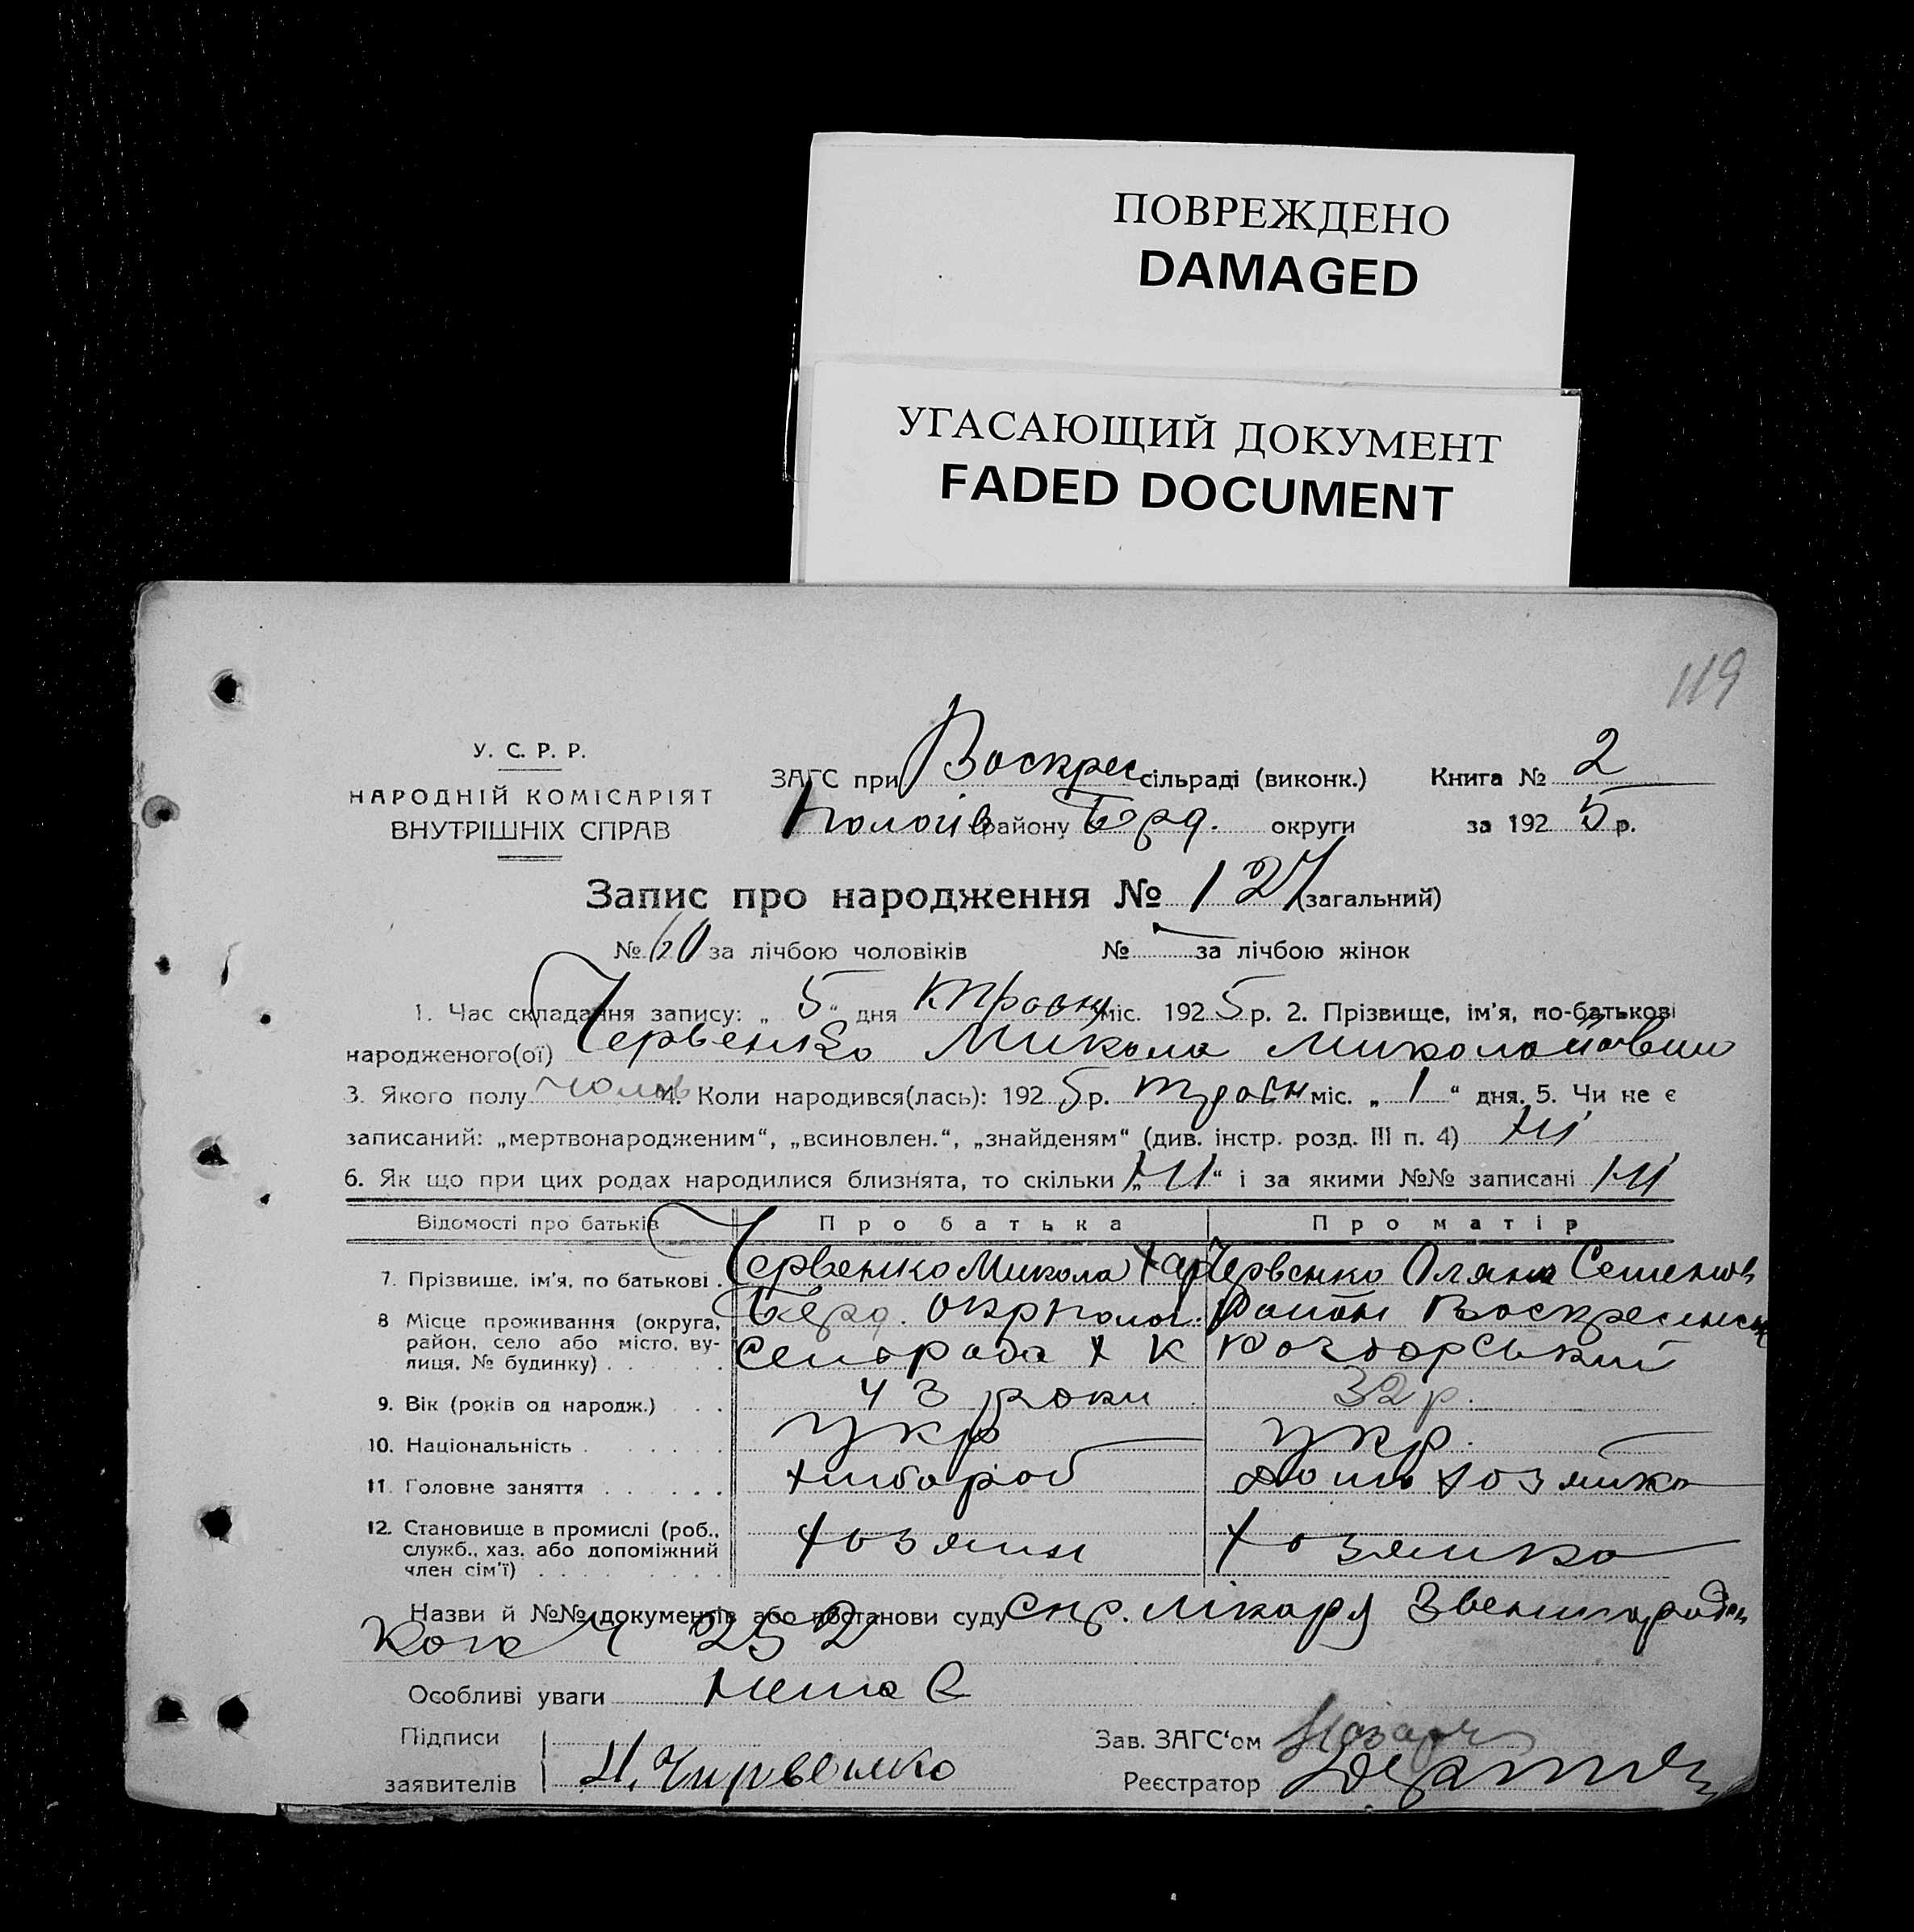 ПОВРЕЖДЕНО
DAMAGED
УГАСАЮЩИЙ ДОКУМЕНТ
FADED DOCUMENT
119
У. С. Р. Р.
НАРОДНІЙ КОМІСАРІЯТ
ВНУТРІШНІХ СПРАВ
ЗАГС при Воскрес сільраді (виконк.) Книга № 2
Пологів району Берд. округи за 1925 р.
Запис про народження № 127 (загальний)
№ 60 за лічбою чоловіків № — за лічбою жінок
1. Час складання запису: „ 5 “ дня травня міс. 1925 р. 2. Прізвище, ім'я, по-батькові
народженого(ої) Червенко Микола Миколайович
3. Якого полу чолов 4. Коли народився(лась): 1925 р. травн міс. „ 1 “ дня. 5. Чи не є
записаний: „мертвонародженим“, „всиновлен.“, „знайденям“ (див. інстр. розд. III п. 4) ні
6. Як що при цих родах народилися близнята, то скільки „ ні “ і за якими №№ записані ні
Відомості про батьків Про батька Про матір
7. Прізвище, ім'я, по батькові . Червенко Микола Хар Червенко Оляна Семенов
8 Місце проживання (округа, Берд. окр Полог. район Воскресенськ
район, село або місто, ву-
лиця, № будинку) . . . . . . Сельрада х К Розгорський
9. Вік (років од народж.) . . . 43 роки 32 р.
10. Національність . . . . . . . укр укр.
11. Головне заняття . . . . . . хлібороб дом хозяйка
12. Становище в промислі (роб., хозяин хозяйка
служб., хаз. або допоміжний
член сім'ї) . . . . . . . . .
Назви й №№ документів або постанови суду спр. лікаря
252
Особливі уваги немає
Підписи Зав. ЗАГС‘ом
заявителів Н. Чирвенко Реєстратор